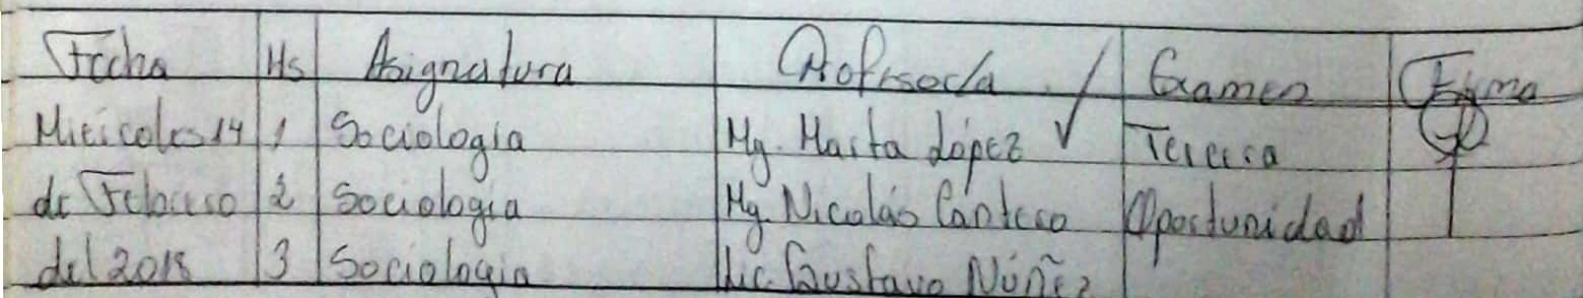 Fecha Hs Asignatura Profesor/a Examen Firma
Miércoles 14 1 Sociología Mg. Marta López ✓ Tercera
de Febrero 2 Sociología Mg. Nicolás Cantero Oportunidad
del 2018 3 Sociología Lic. Gustavo Núñez